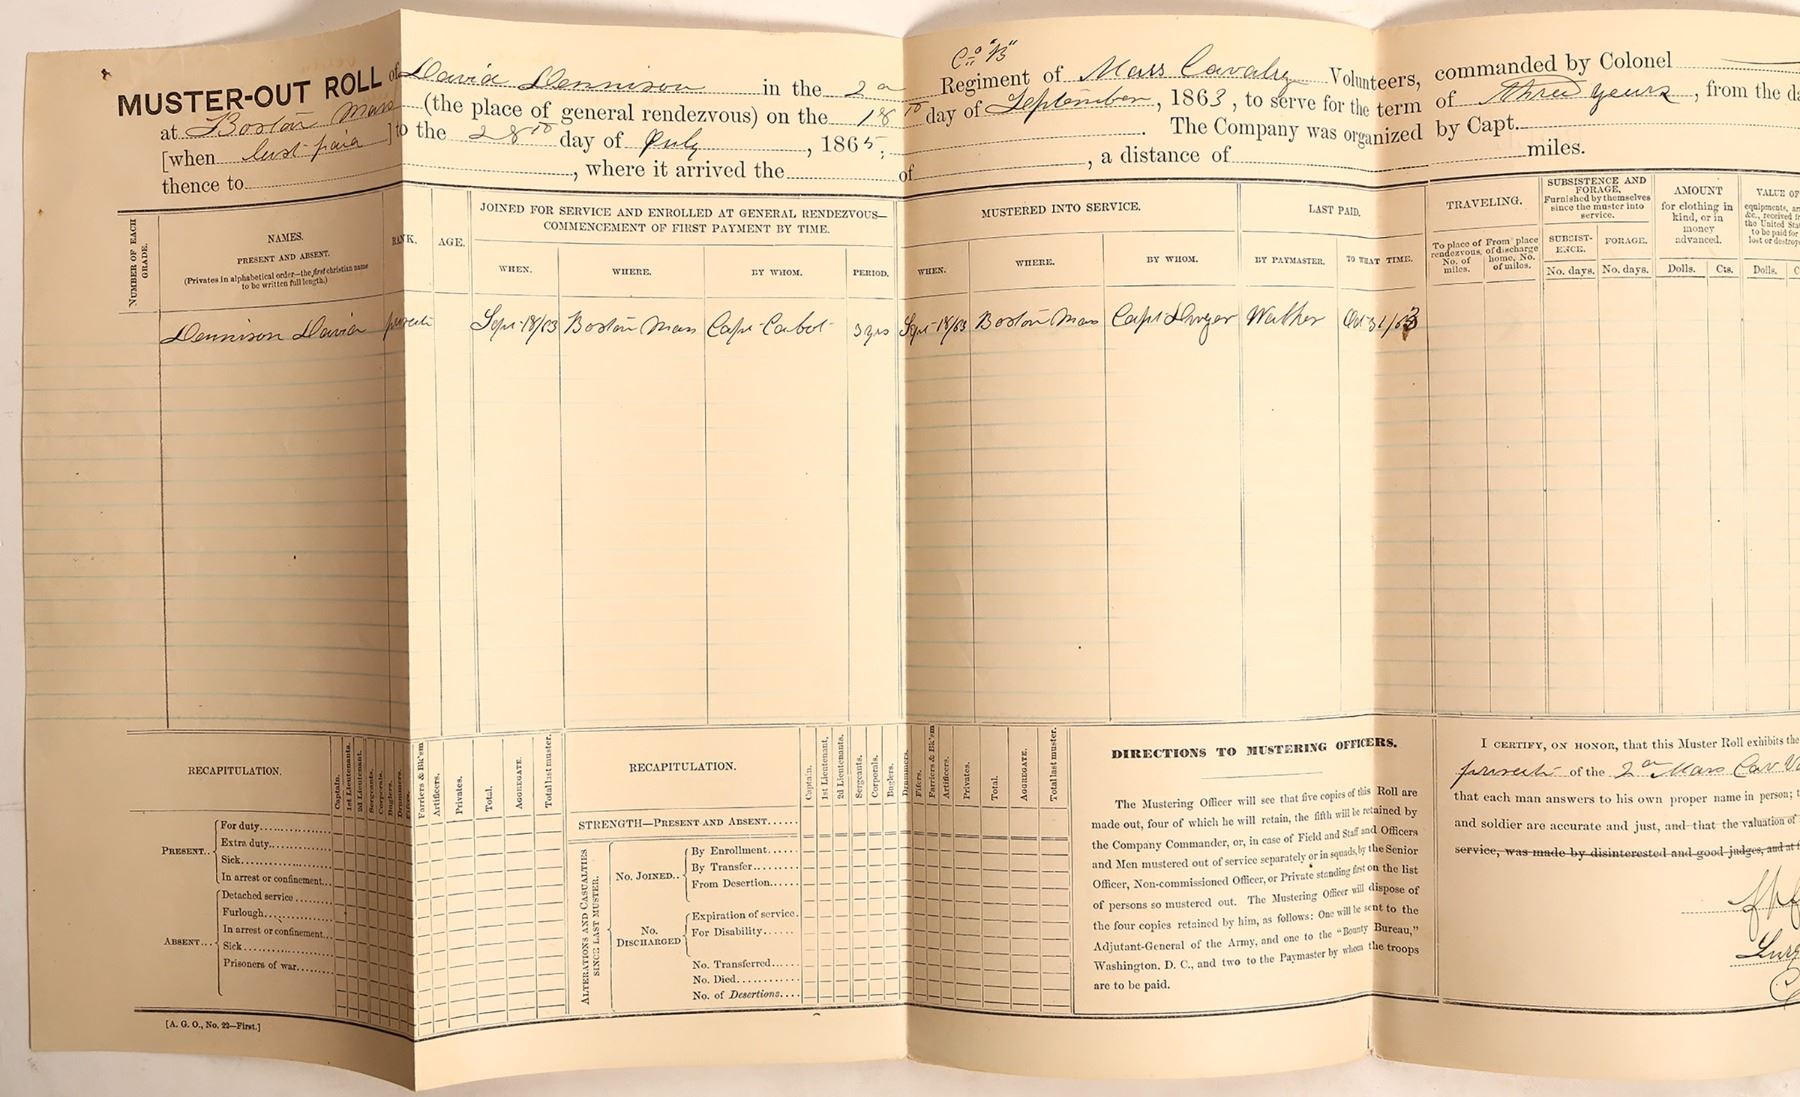 Co "B"
MUSTER-OUT ROLL of David Dennison in the 2d Regiment of Mass Cavalry Volunteers, commanded by Colonel
at Boston Mass (the place of general rendezvous) on the 18th day of September, 1863, to serve for the term of three years, from the da
[when last paid] to the 28th day of July, 1865; The Company was organized by Capt.
thence to , where it arrived the of , a distance of miles.
NUMBER OF EACH GRADE.
NAMES.
PRESENT AND ABSENT.
(Privates in alphabetical order—the first christian name to be written full length.)
RANK.
AGE.
JOINED FOR SERVICE AND ENROLLED AT GENERAL RENDEZVOUS—
COMMENCEMENT OF FIRST PAYMENT BY TIME.
WHEN. WHERE. BY WHOM. PERIOD.
MUSTERED INTO SERVICE.
WHEN. WHERE. BY WHOM.
LAST PAID.
BY PAYMASTER. TO WHAT TIME.
TRAVELING.
To place of rendezvous, No. of miles.
From place of discharge home, No. of miles.
SUBSISTENCE AND FORAGE,
Furnished by themselves since the muster into service.
SUBSISTENCE. FORAGE.
No. days. No. days.
AMOUNT
for clothing in kind, or in money advanced.
Dolls. Cts.
VALUE OF
equipments, ar
&c., received fr
the United Stat
to be paid for
lost or destroye
Dolls. C
Dennison David private Sept 18/63 Boston Mass Capt Cabot 3 yrs Sept 18/63 Boston Mass Capt Walker Oct 31/63
RECAPITULATION.
Captain.
1st Lieutenants.
2d Lieutenant.
Sergeants.
Corporals.
Buglers.
Drummers.
Fifers.
Farriers & Bk'sm
Artificers.
Privates.
Total.
AGGREGATE.
Total last muster.
PRESENT..
For duty
Extra duty
Sick
In arrest or confinement
ABSENT...
Detached service
Furlough
In arrest or confinement
Sick
Prisoners of war
[A. G. O., No. 22—First.]
RECAPITULATION.
Captain.
1st Lieutenant,
2d Lieutenants.
Sergeants.
Corporals.
Buglers.
Drummers.
Fifers.
Farriers & Bk'sm
Artificers.
Privates.
Total.
AGGREGATE.
Total last muster.
STRENGTH—PRESENT AND ABSENT
ALTERATIONS AND CASUALTIES SINCE LAST MUSTER.
NO. JOINED..
By Enrollment
By Transfer
From Desertion
NO. DISCHARGED
Expiration of service.
For Disability
No. Transferred
No. Died
No. of Desertions
DIRECTIONS TO MUSTERING OFFICERS.
The Mustering Officer will see that five copies of this Roll are
made out, four of which he will retain, the fifth will be retained by
the Company Commander, or, in case of Field and Staff and Officers
and Men mustered out of service separately or in squads, by the Senior
Officer, Non-commissioned Officer, or Private standing first on the list
of persons so mustered out. The Mustering Officer will dispose of
the four copies retained by him, as follows: One will be sent to the
Adjutant-General of the Army, and one to the "Bounty Bureau,"
Washington, D. C., and two to the Paymaster by whom the troops
are to be paid.
I CERTIFY, ON HONOR, that this Muster Roll exhibits the
private of the 2d Mass Cav V
that each man answers to his own proper name in person; t
and soldier are accurate and just, and that the valuation of
service, was made by disinterested and good judges, and at
Surg